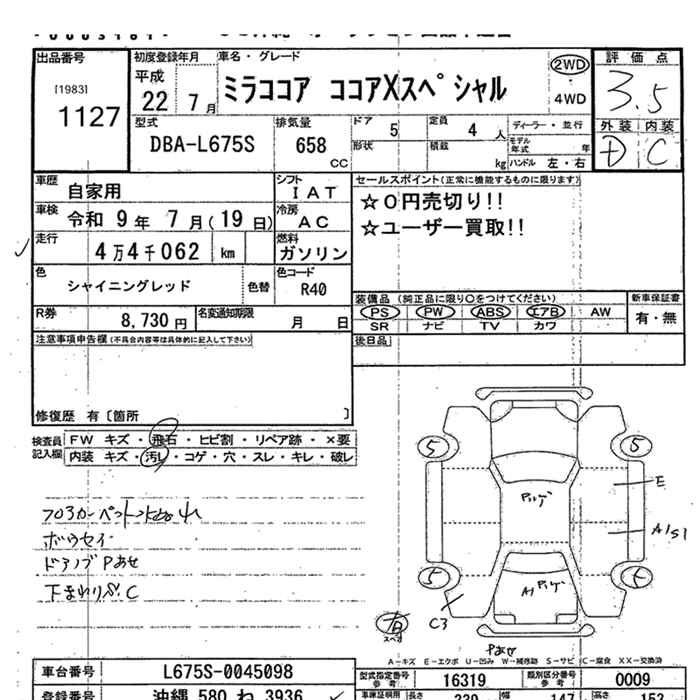 出品番号 初度登録年月 車名・グレード 評価点
[1983] 平成 2WD
1127 22 7月 ミラココア ココアXスペシャル 4WD 3.5
型式 排気量 ドア 定員 ディーラー・並行 外装 内装
DBA-L675S 658 CC 5 4人 D C
形状 積載 kg モデル年式 年 ハンドル 左・右
車歴 自家用 シフト IAT セールスポイント(正常に機能するものに限ります)
車検 令和 9年 7月(19日) 冷房 AC ☆0円売切り!!
走行 4万4千062 km 燃料 ガソリン ☆ユーザー買取!!
色 シャイニングレッド 色替 色コード R40
装備品 (純正品に限り○をつけてください) 新車保証書
R券 8,730円 名変通知期限 月 日 PS PW ABS エアB AW 有・無
SR ナビ TV カワ
注意事項申告欄(不具合内容等は具体的に記入して下さい) 後日品
修復歴 有〔箇所 〕
検査員記入欄 FW キズ・飛石・ヒビ割・リペア跡・×要
内装 キズ・汚レ・コゲ・穴・スレ・キレ・破レ
5 5
E
フロアカーペット
ボウセイ A1S1
ドアノブPあせ
5
C3
スペア
Pあせ
A-キズ E-エクボ U-凹み W-補修跡 S-サビ C-腐食 XX-交換済
車台番号 L675S-0045098 型式指定番号 参考 16319 類別区分番号 参考 0009
登録番号 沖縄 580 ね 3936 車庫証明用 長さ 幅 高さ